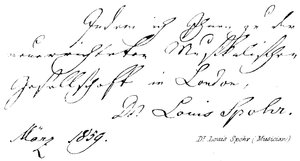 Indem ich Ihnen zu der
neuerrichteten Musikalischen
Gesellschaft in London,
Dr. Louis Spohr.
März 1859.
Dr. Louis Spohr (Musician)